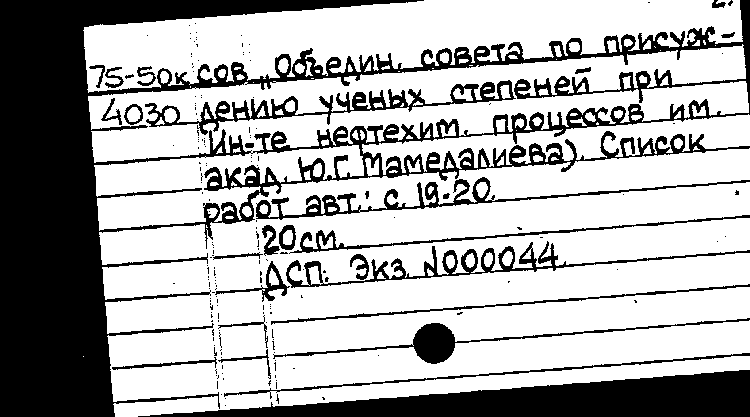 2.
75-50к сов „Объедин. совета по присуж-
4030 дению ученых степеней при
Ин-те нефтехим. процессов им.
акад. Ю.Г. Мамедалиева). Список
работ авт.: с. 19-20.
20см.
ДСП. Экз. №000044.